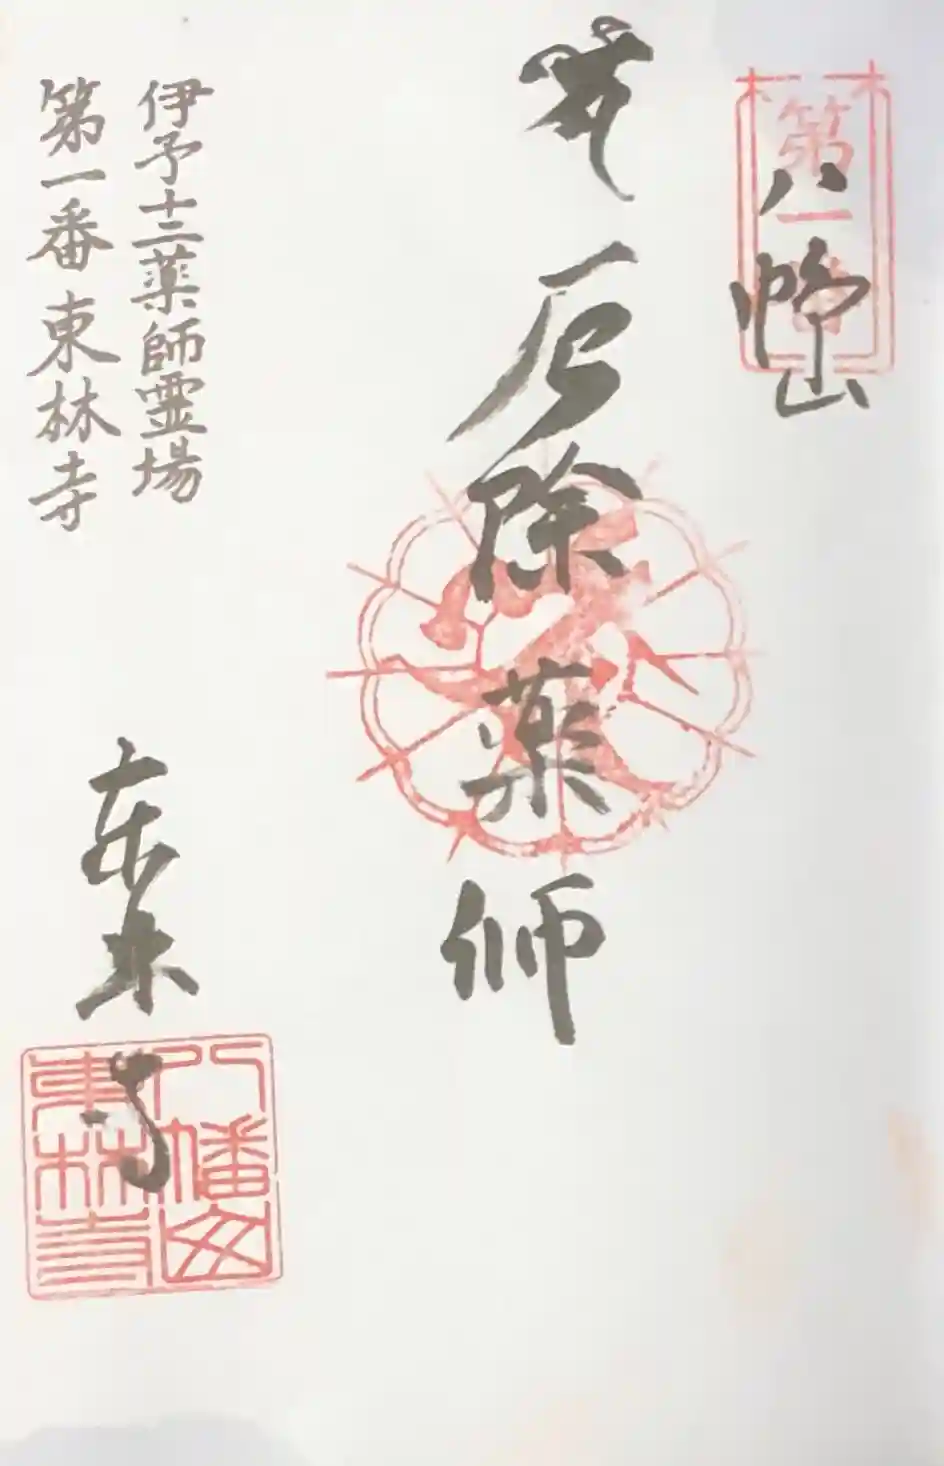 第一番
八幡山
厄除薬師
伊予十二薬師霊場
第一番 東林寺
東林寺
八幡山
東林寺